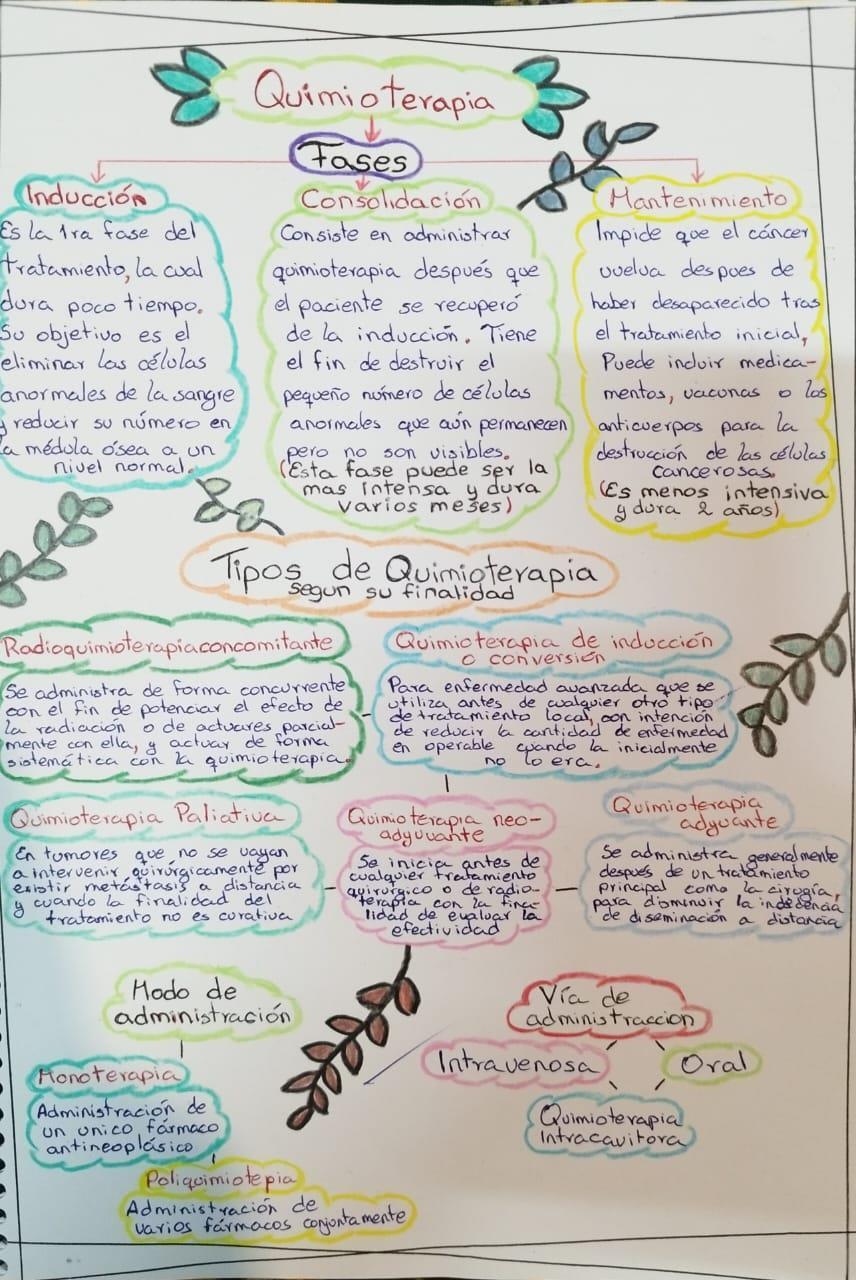 Quimioterapia
Fases
Inducción
Es la 1ra fase del
tratamiento, la cual
dura poco tiempo.
Su objetivo es el
eliminar las células
anormales de la sangre
y reducir su número en
la médula ósea a un
nivel normal.
Consolidación
Consiste en administrar
quimioterapia después que
el paciente se recuperó
de la inducción. Tiene
el fin de destruir el
pequeño número de células
anormales que aún permanecen
pero no son visibles.
(Esta fase puede ser la
mas intensa y dura
varios meses)
Mantenimiento
Impide que el cáncer
vuelva despues de
haber desaparecido tras
el tratamiento inicial,
Puede incluir medica-
mentos, vacunas o los
anticuerpos para la
destrucción de las células
cancerosas.
(Es menos intensiva
y dura 2 años)
Tipos de Quimioterapia
segun su finalidad
Radioquimioterapia concomitante
Se administra de forma concurrente
con el fin de potenciar el efecto de
la radiación o de actuares parcial-
mente con ella, y actuar de forma
sistemática con la quimioterapia.
Quimioterapia de inducción
o conversión
Para enfermedad avanzada que se
utiliza antes de cualquier otro tipo
de tratamiento local, con intención
de reducir la cantidad de enfermedad
en operable cuando la inicialmente
no lo era.
Quimioterapia Paliativa
En tumores que no se vayan
a intervenir quirúrgicamente por
existir metástasis a distancia
y cuando la finalidad del
tratamiento no es curativa
Quimioterapia neo-
adyuvante
Se inicia antes de
cualquier tratamiento
quirurgico o de radio-
terapia con la fina-
lidad de evaluar la
efectividad
Quimioterapia
adyuvante
Se administra generalmente
después de un tratamiento
principal como la cirugía,
para disminuir la incidencia
de diseminación a distancia
Modo de
administración
Monoterapia
Administración de
un unico fármaco
antineoplásico
Poliquimiotepia
Administración de
varios fármacos conjuntamente
Vía de
administraccion
Intravenosa
Oral
Quimioterapia
Intracavitora